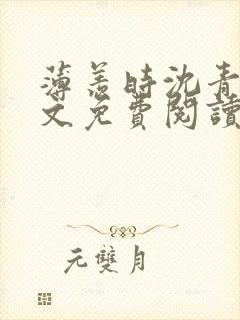 薄羞时沈青
文免費閱讀
元雙月